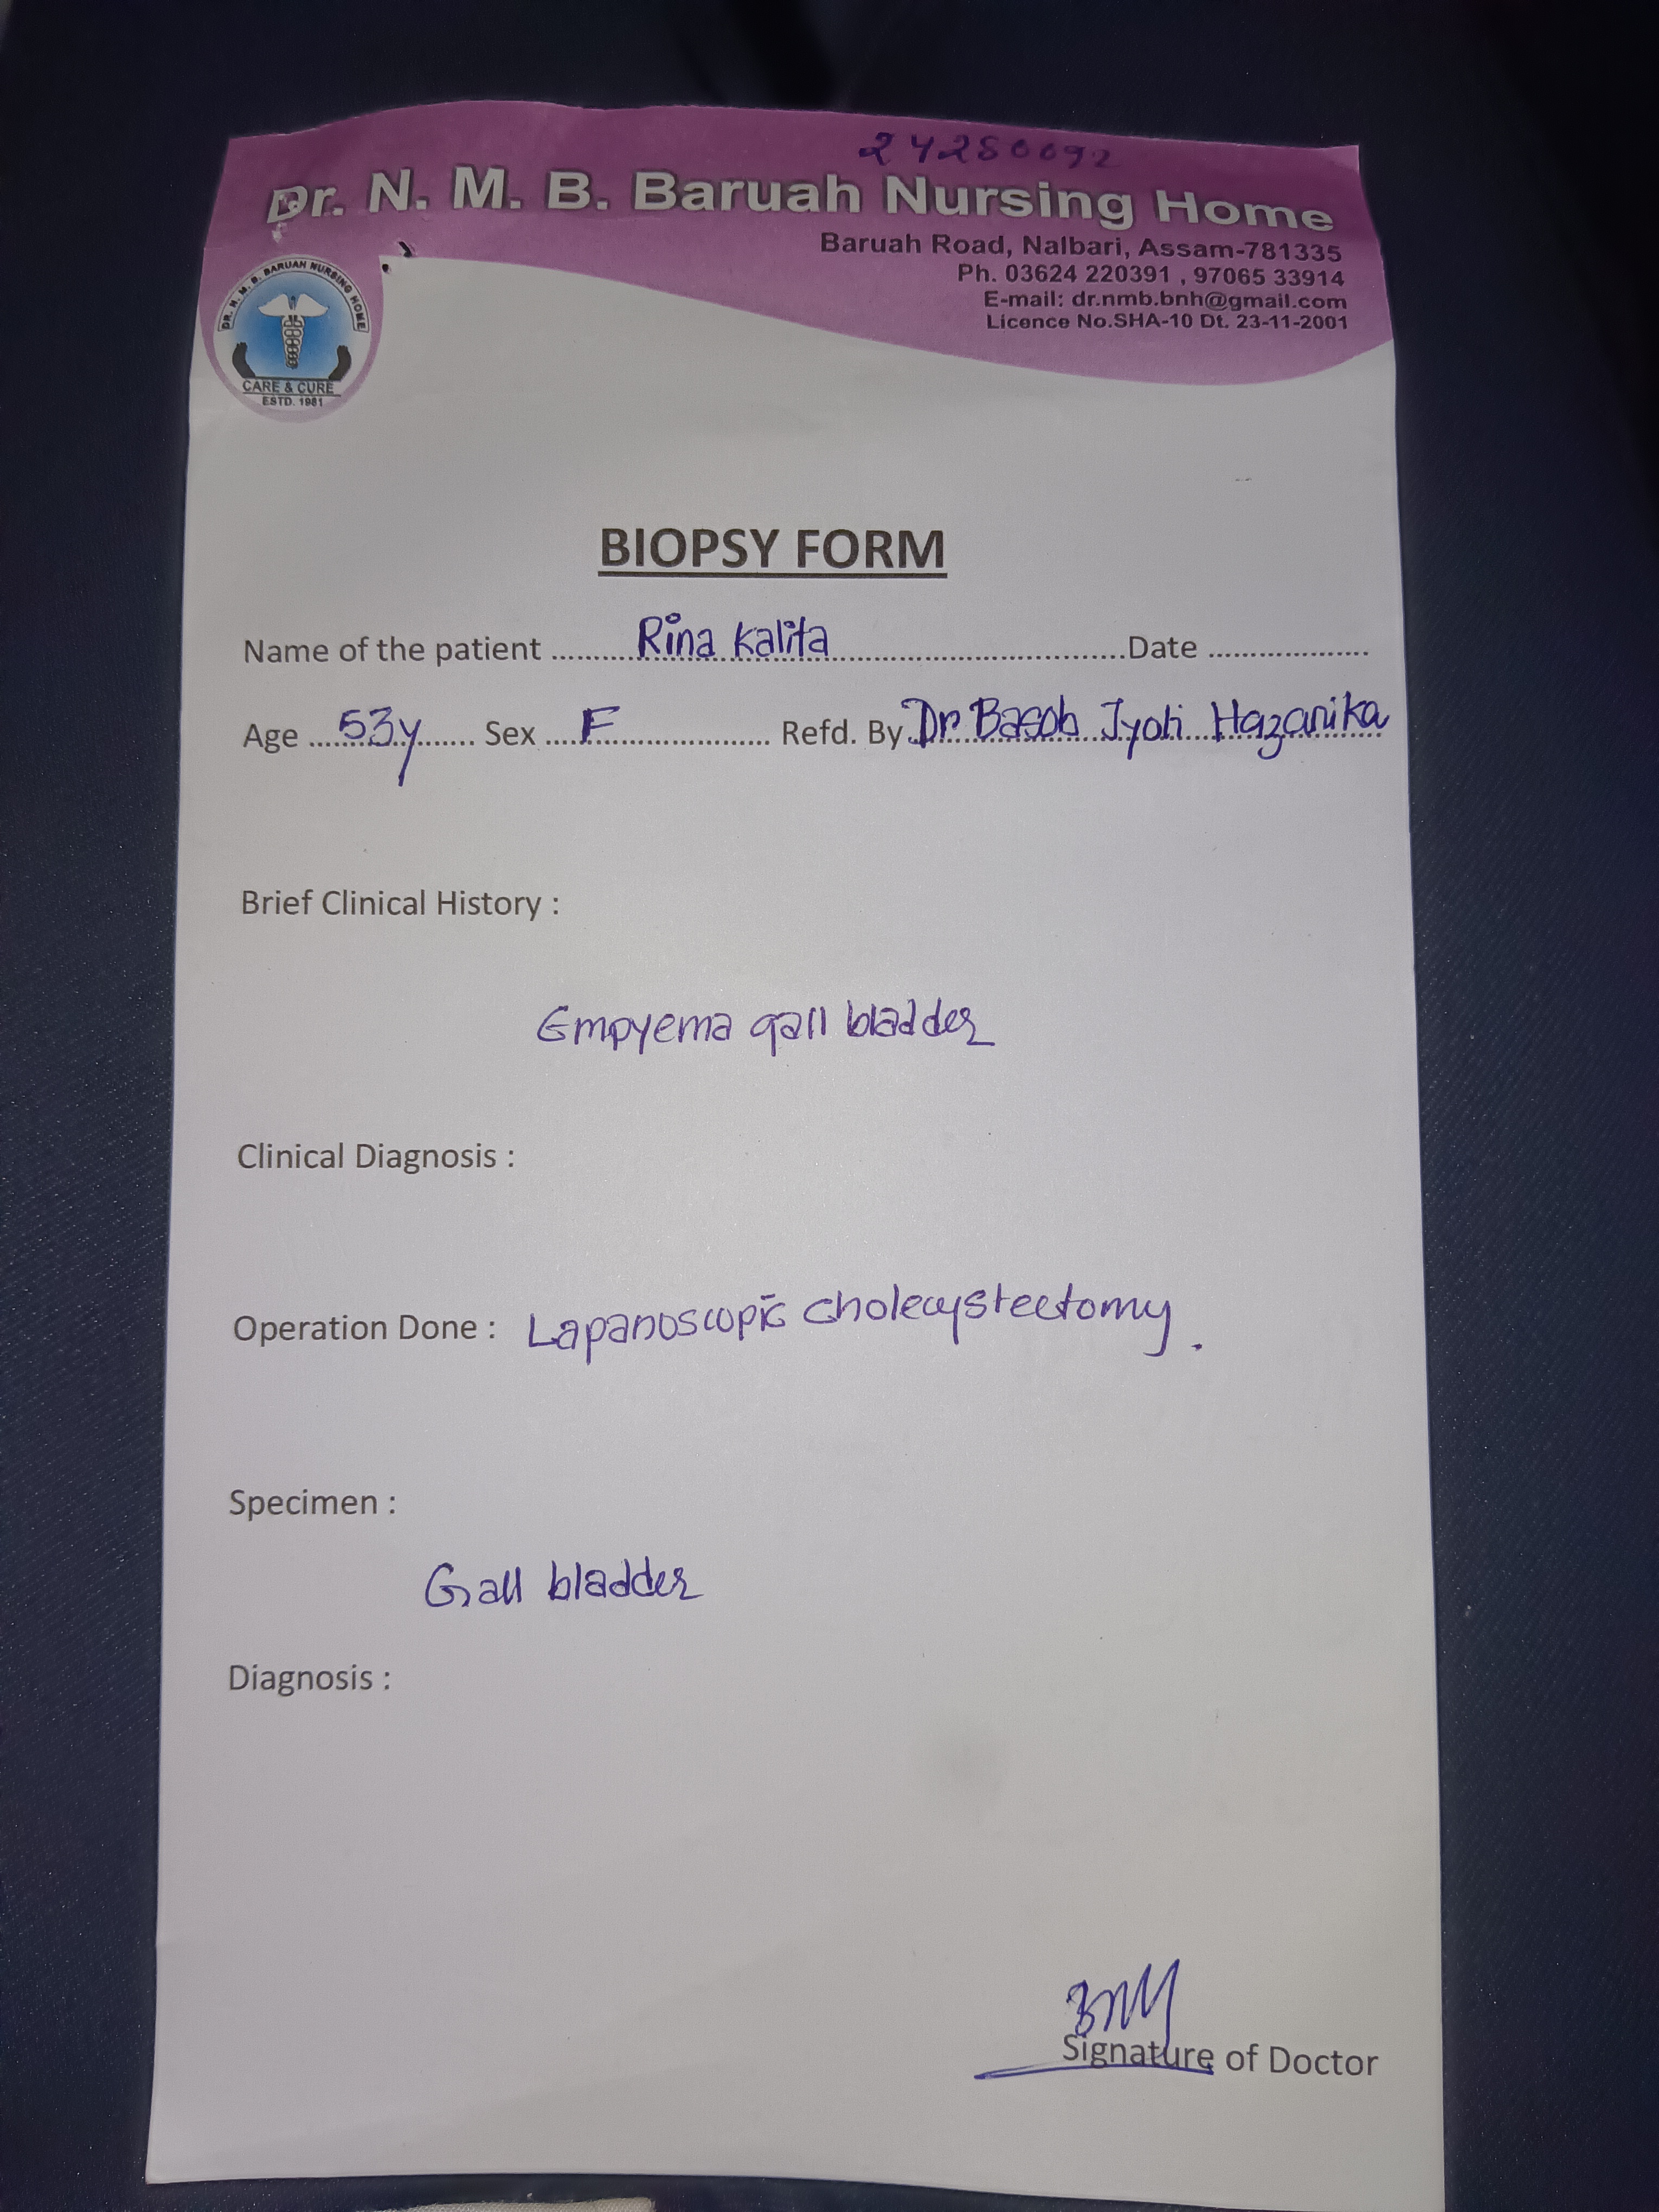 24280092
Dr. N. M. B. Baruah Nursing Home
Baruah Road, Nalbari, Assam-781335
Ph. 03624 220391 , 97065 33914
E-mail: dr.nmb.bnh@gmail.com
Licence No.SHA-10 Dt. 23-11-2001
DR. N. M. B. BARUAH NURSING HOME
CARE & CURE
ESTD. 1981
BIOPSY FORM
Name of the patient .......... Rina Kalita ..............................Date ....................
Age .... 53y ....... Sex .... F ....................... Refd. By Dr Basob Jyoti Hazarika
Brief Clinical History :
Empyema gall bladder
Clinical Diagnosis :
Operation Done : Laparoscopic cholecystectomy.
Specimen :
Gall bladder
Diagnosis :
Signature of Doctor